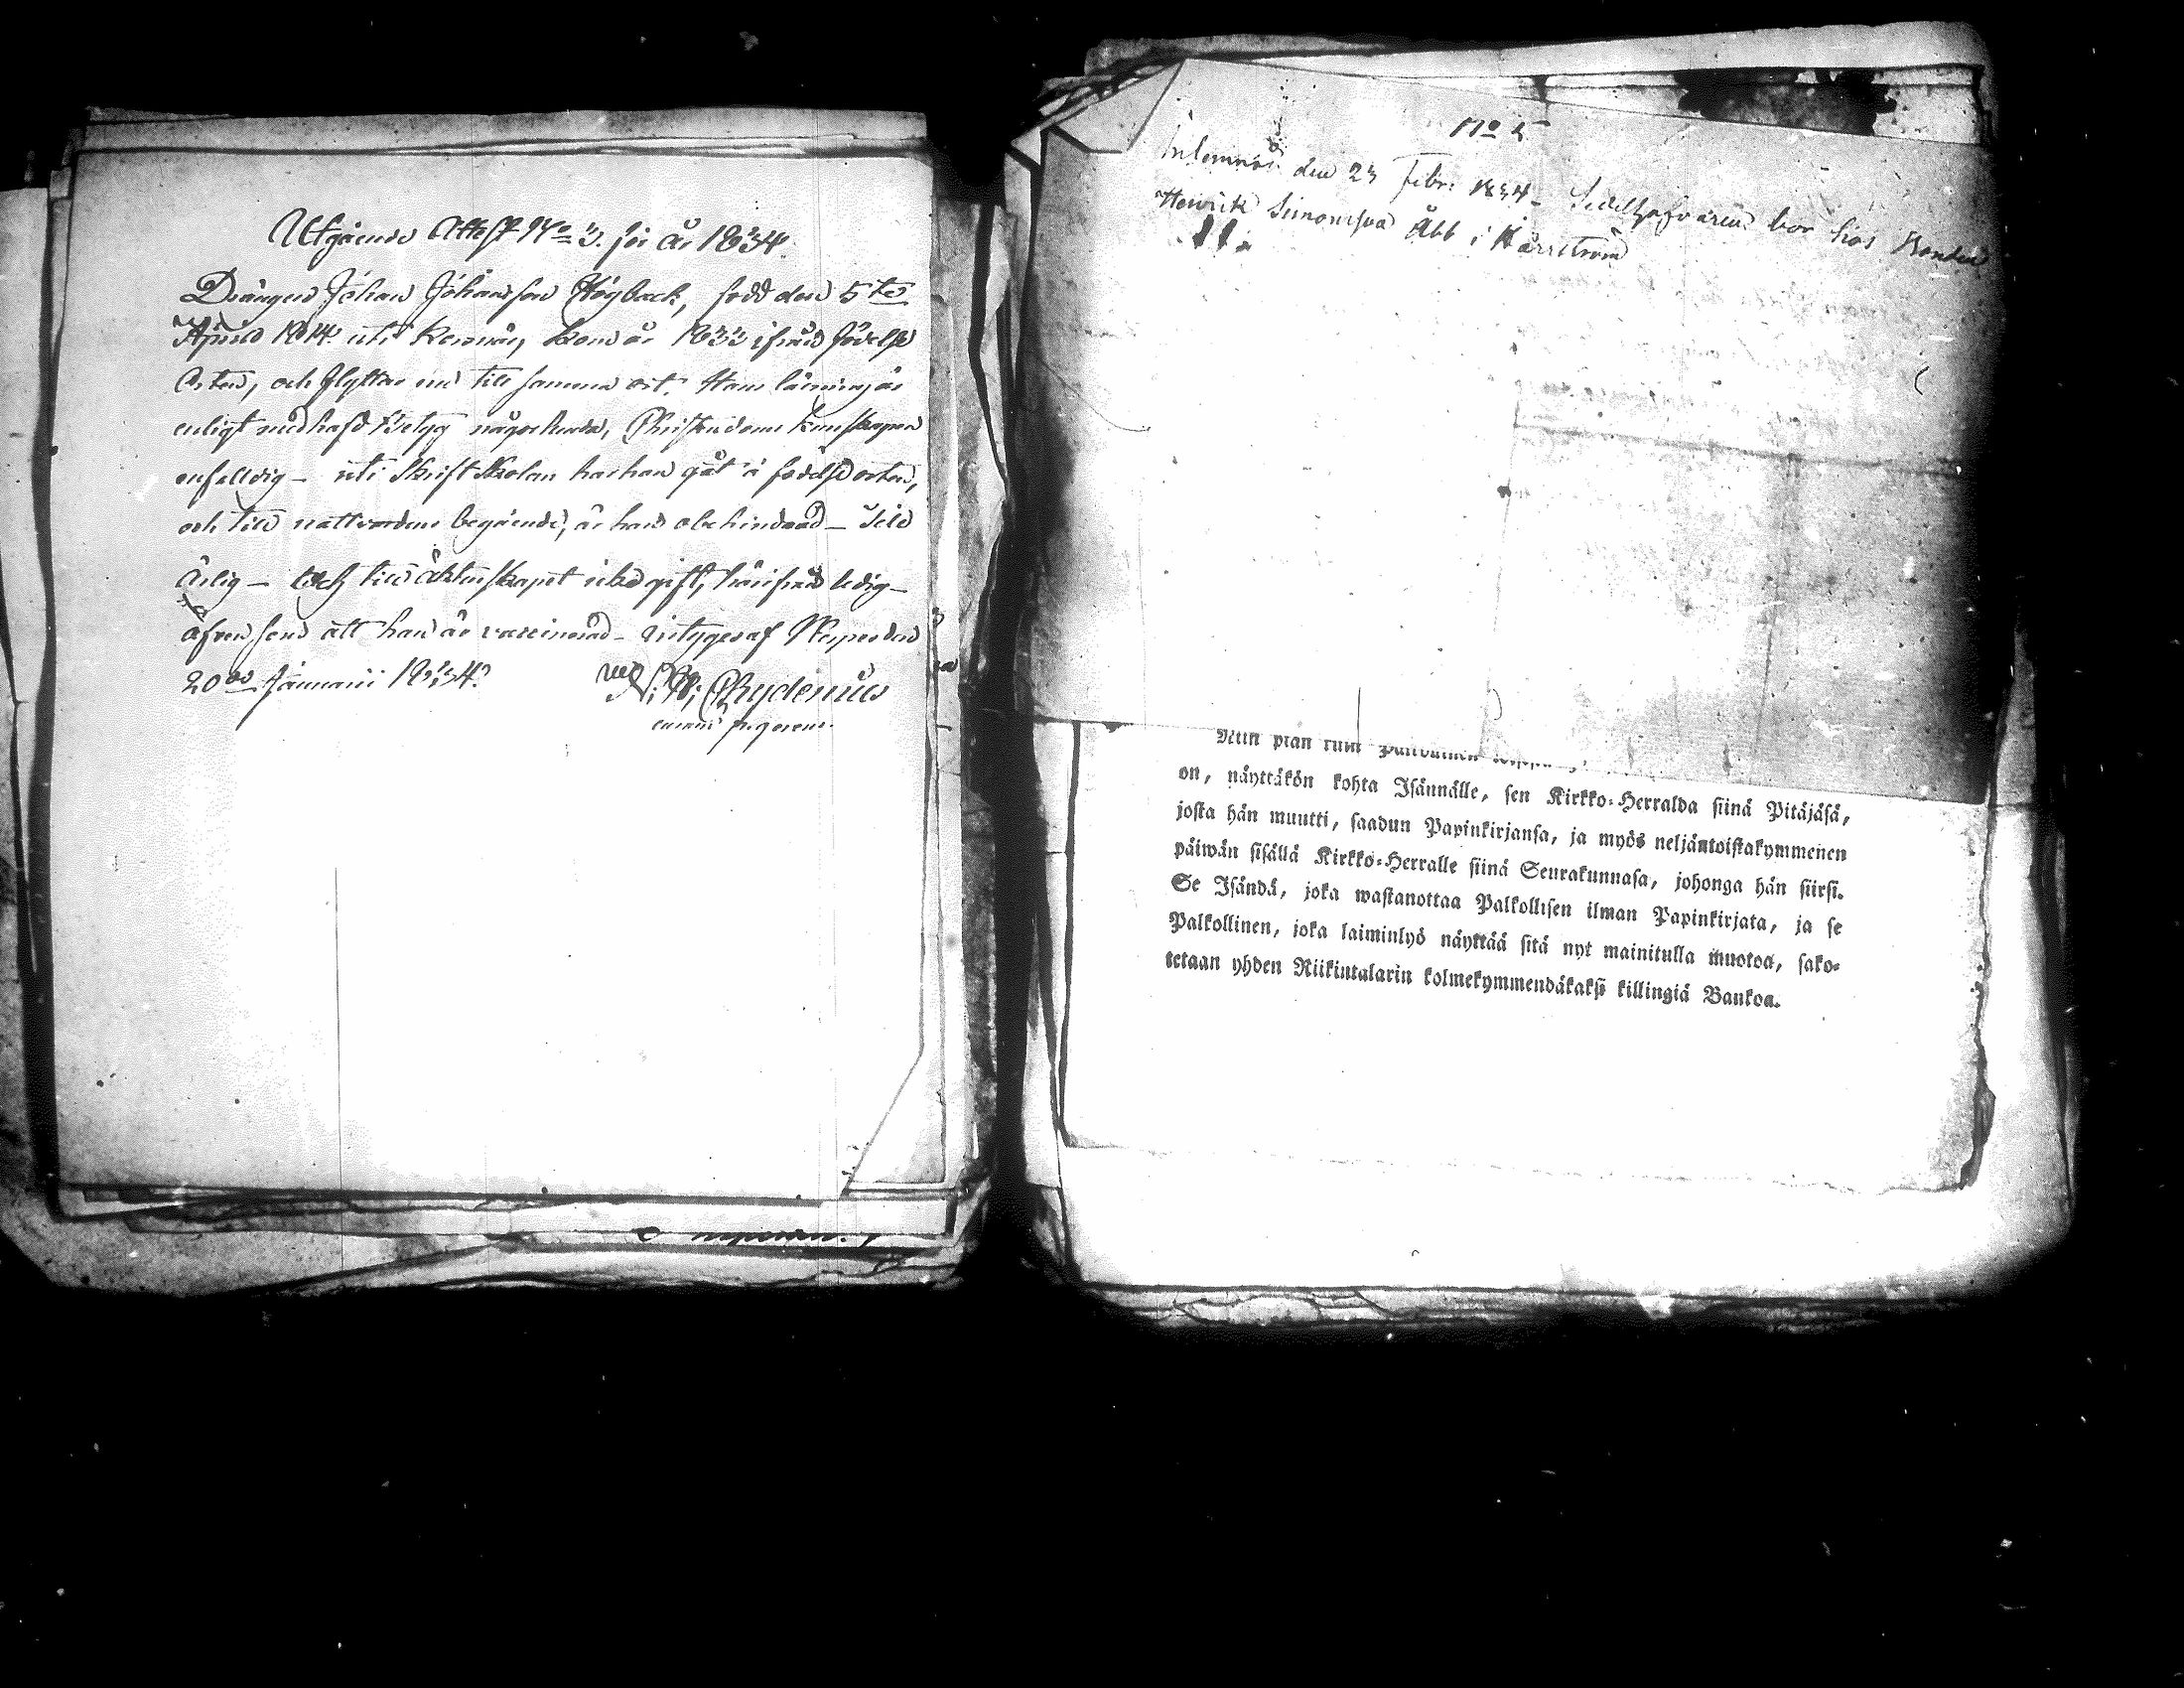 Utgående Attest No 3. för år 1834.
Drängen Johan Johansson Högback, född den 5te
April 1814 uti Kronoby, kom år 1833 ifrån födelse
Orten, och flyttar nu till samma ort. Hans läsning är
enligt medhafd betyg någorlunda, Christendoms kunskapen
enfaldig – uti Skriftskolan har han gåt å födelse orten,
och till nattvardens begående, är han obehindrad –
Ärlig – och till äktenskapet icke gift, härifrån ledig –
äfven som att han är vaccinerad – intygar af
20de Januarii 1834.
Chydenius
No 5
Inlemnad den 23 Febr: 1834 – Sedelhafvaren bor hos Bonden
Henrik Simonsson Åbb i Kårström
Niin pian kuin
on, näyttäkön kohta Isännälle, sen Kirkko-Herralda siinä Pitäjäsä,
josta hän muutti, saadun Papinkirjansa, ja myös neljäntoistakymmenen
päiwän sisällä Kirkko-Herralle siinä Seurakunnasa, johonga hän siirsi.
Se Isändä, joka wastanottaa Palkollisen ilman Papinkirjata, ja se
Palkollinen, joka laiminlyö näyttää sitä nyt mainitulla muotoa, sako-
tetaan yhden Riikintalarin kolmekymmendäkaksi killingiä Bankoa.